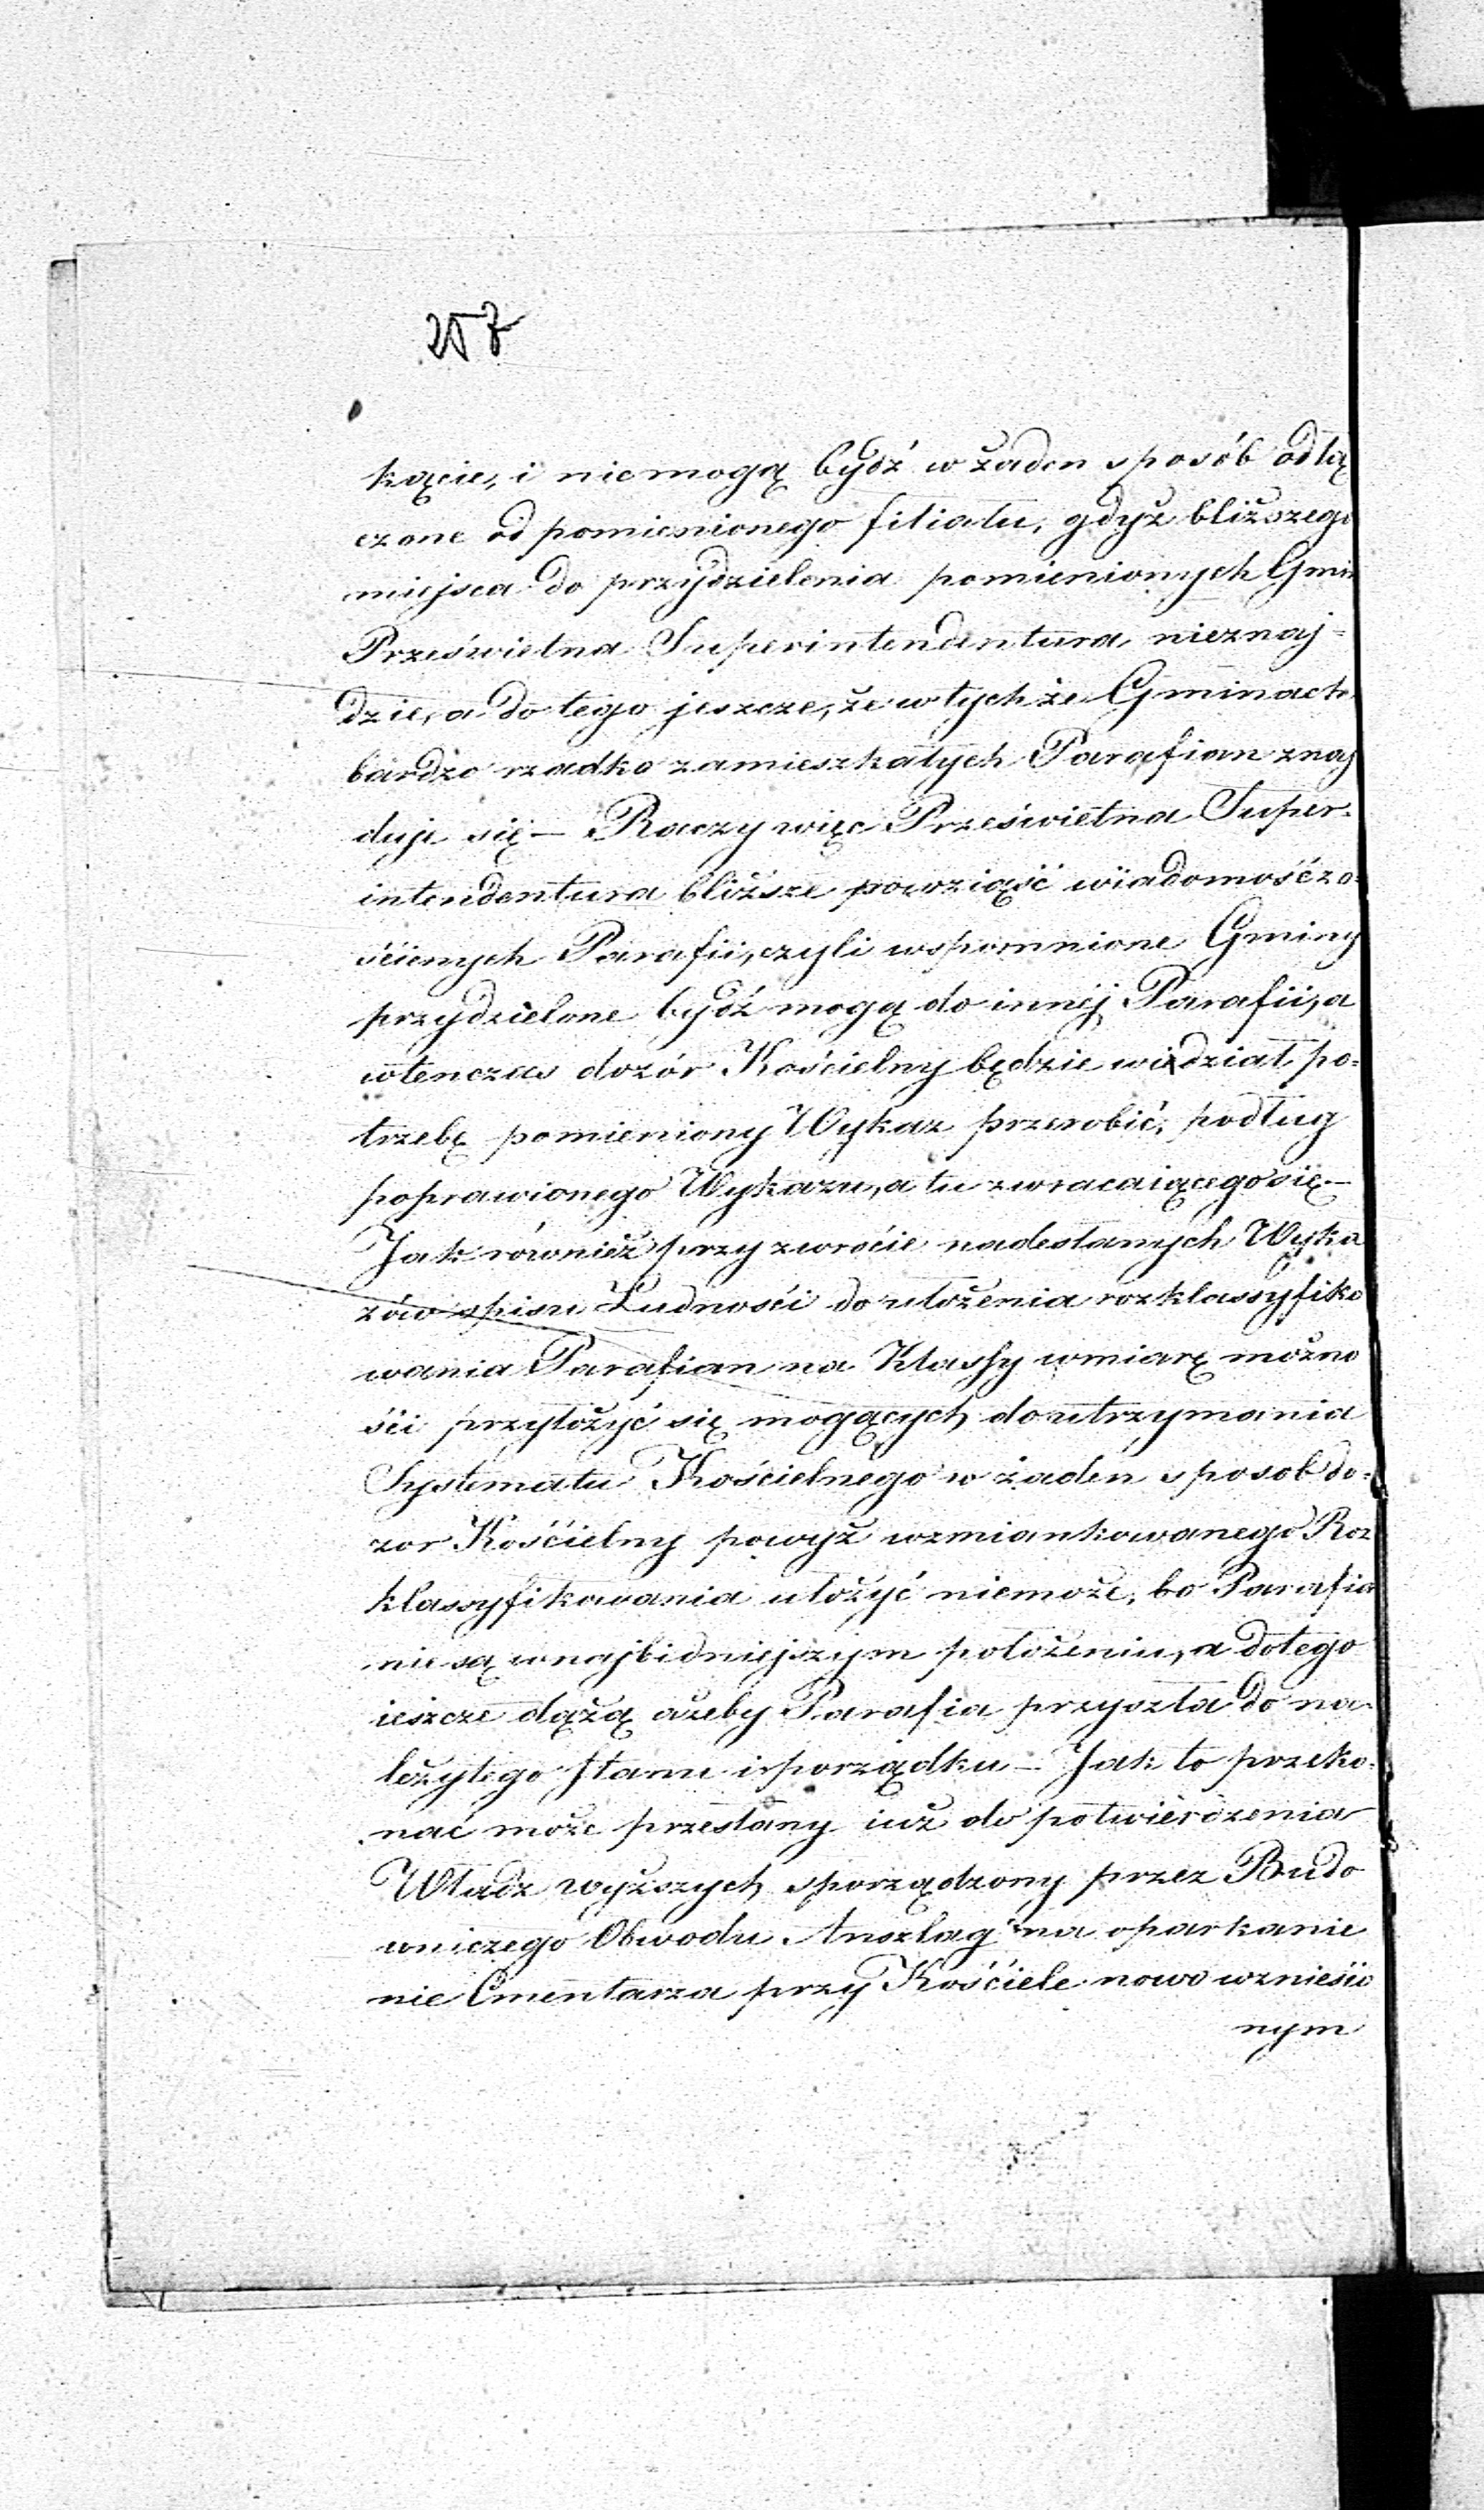 257
kącie, i niemogą bydź w żaden sposób odłą
czone od pomienionego filiału, gdyż bliższego
miejsca do przydzielenia pomienionych Gmin
Prześwietna Superintendentura nieznaj=
dzie, a do tego jeszcze, że w tychże Gminach
bardzo rzadko zamieszkałych Parafian znaj
duje się — Raczy więc Prześwietna Super=
intendentura bliższe powziąść wiadomość z o=
ściennych Parafii, czyli wspomnione Gminy
przydzielone bydź mogą do innéj Parafii, a
wtenczas dozór Kościelny będzie widział po=
trzebę pomieniony Wykaz przerobić, podług
poprawionego Wykazu, a tu zwracaiącego się —
Jak równieź przy zwrócie nadesłanych Wyka
zów spisu Ludności do ułożenia rozklassyfiko
wania Parafian na Klassy w miarę możno
ści przyłożyć się mogących do utrzymania
Systematu Kościelnego w żaden sposob do=
zor Kościelny powyż wzmiankowanego Roz
klassyfikowania ułożyć niemoże, bo Parafia
nie są w najbidniejszym położeniu, a dotego
ieszcze dążą ażeby Parafia przyszła do na=
leżytego stanu i porządku — Jak to przeko=
nać może przesłany iuż do potwierdzenia
Władz wyższych sporządzony przez Budo
wniczego Obwodu Anszlag na oparkanie
nie Cmentarza przy Kościele nowo wznieśio
nym